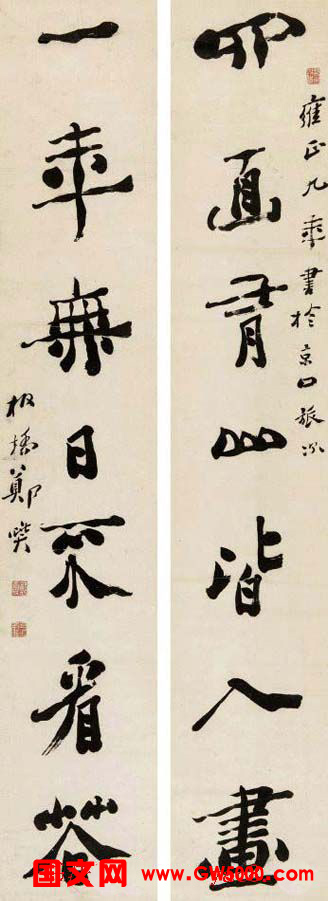 雍正九年書於京口旅次
四面青山皆入畫
一年無日不看花
板橋鄭燮
国文网 www.GW5000.com